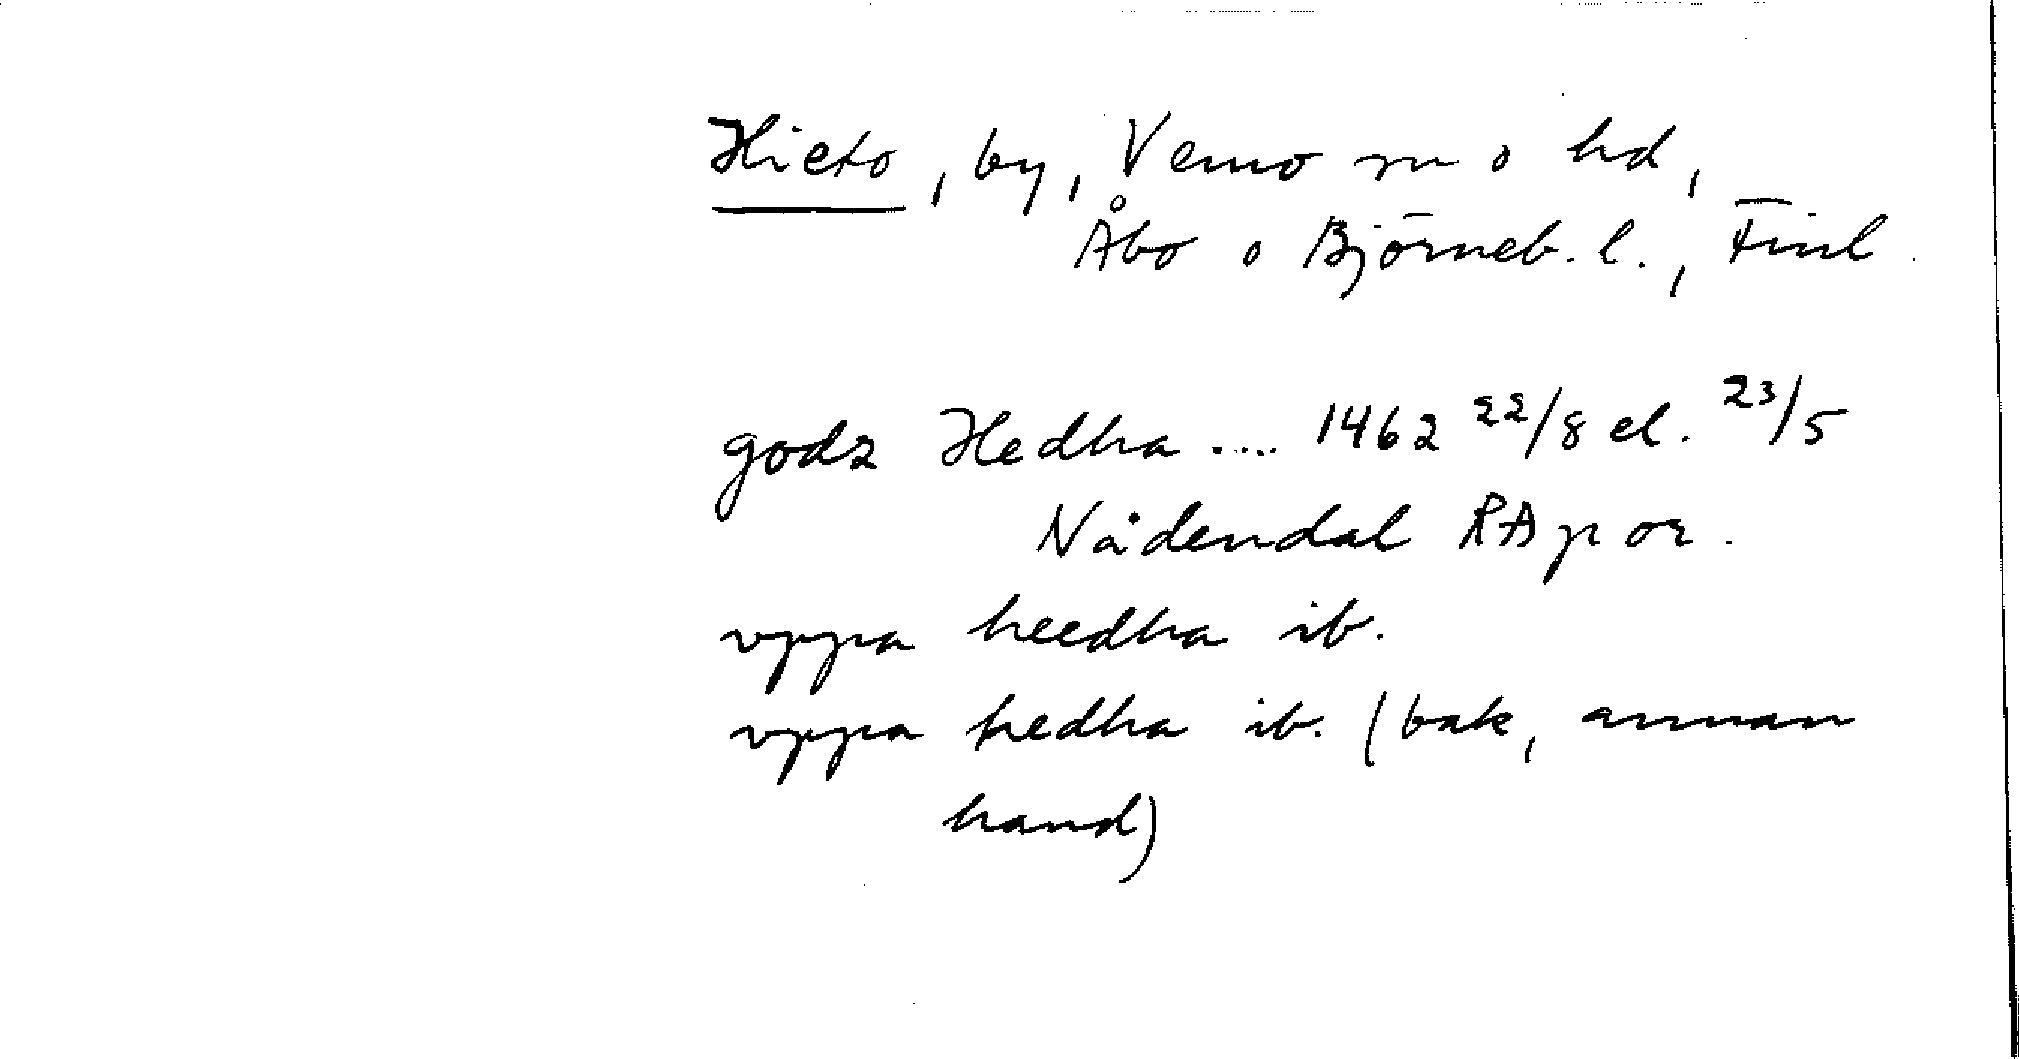 Hieto, by, Vemo sn o hd,
Åbo o Björneb. l., Finl.
godz Hedha .... 1462 22/8 el. 23/5
Nådendal RAp or.
vppa heedha ib.
vppa hedha ib. (bak, annan
hand)